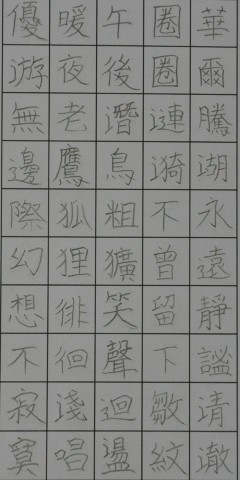 華爾騰湖永遠靜謐清澈
圈圈漣漪不曾留下皺紋
午後潛鳥粗獷笑聲迴盪
暖夜老鷹狐狸徘徊淺唱
優游無邊際幻想不寂寞